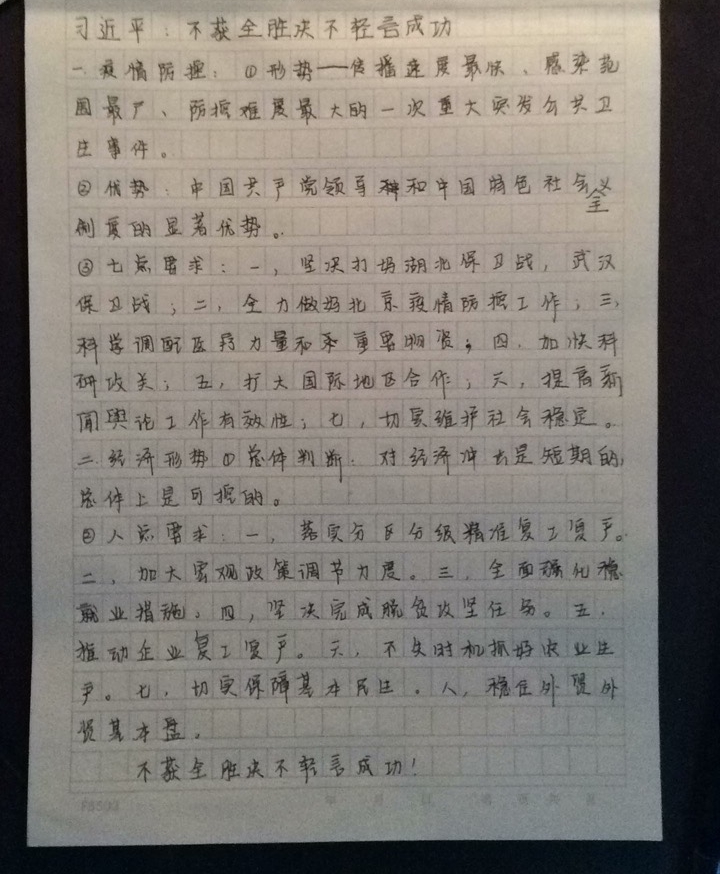 习近平：不获全胜决不轻言成功
一.疫情防控：①形势——传播速度最快、感染范
围最广、防控难度最大的一次重大突发公共卫
生事件。
②优势：中国共产党领导和中国特色社会主义
制度的显著优势。
③七点要求：一，坚决打好湖北保卫战，武汉
保卫战；二，全力做好北京疫情防控工作；三，
科学调配医疗力量和重要物资；四，加快科
研攻关；五，扩大国际地区合作；六，提高新
闻舆论工作有效性；七，切实维护社会稳定。
二.经济形势①总体判断：对经济冲击是短期的，
总体上是可控的。
②八点要求：一，落实分区分级精准复工复产。
二，加大宏观政策调节力度。三，全面强化稳
就业措施。四，坚决完成脱贫攻坚任务。五.
推动企业复工复产。六，不失时机抓好农业生
产。七，切实保障基本民生。八，稳住外贸外
资基本盘。
不获全胜决不轻言成功！